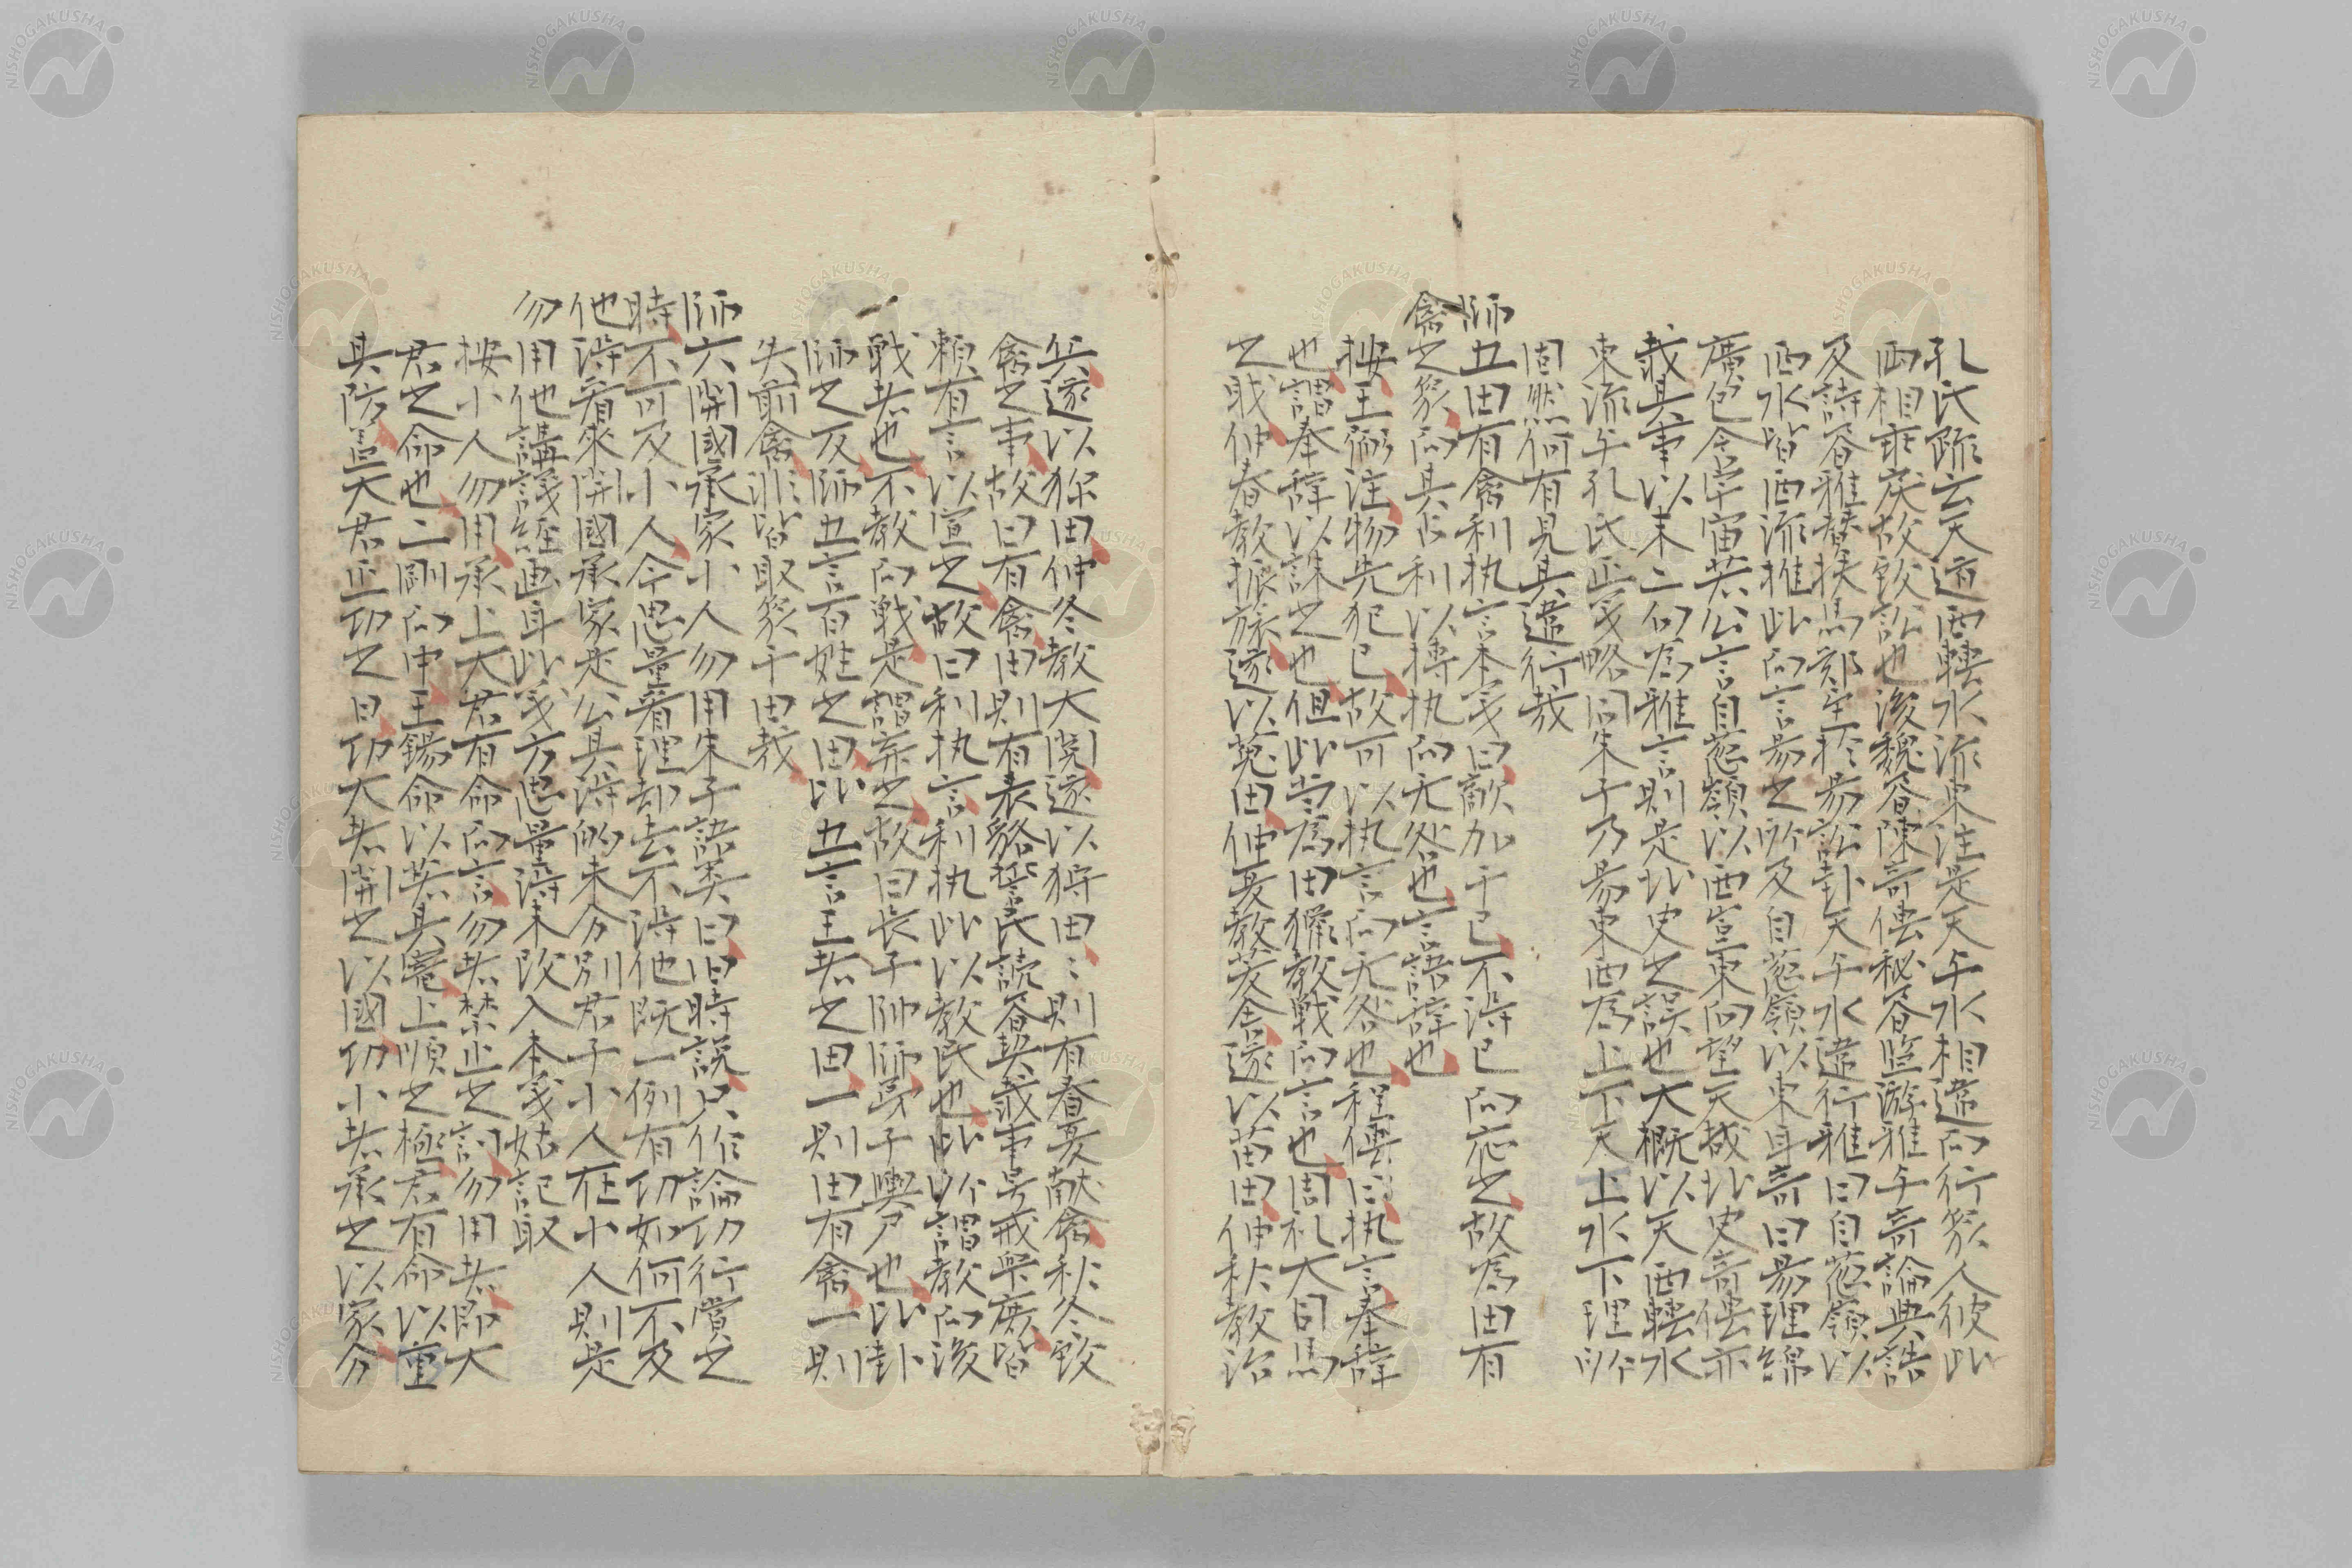 孔氏疏云天道西轉水流東注是天与水相違而行象人彼此
両相乖戻故致訟也後魏書陳奇傳秘書監游雅与奇論典誥
及詩書雅賛扶馬鄭至於易訟卦天与水違行雅曰自葱嶺以
西水皆西流推此而言易之所及自葱嶺以東耳奇曰易理綿
廣包含宇宙若公言自葱嶺以西豈東向望天哉北史奇傳亦
載其事以末二句為雅言則是北史之誤也大概以天西轉水
東流与孔氏正義略同朱子乃易東西為上下天上水下理所
固然何有見其違行哉
師五田有禽利执言本義曰敵加于己不得已而応之故為田有
禽之象而其占利以搏执而无咎也言語辞也
按王弼注物先犯己故可以执言而无咎也程傳曰执言奉辞
也謂奉辞以誅之也但此当為田獵教戦而言也周礼大司馬
之戝仲春教振旅遂以蒐田仲夏教茇舎遂以苗田仲秋教治
兵遂以狝田仲冬教大閲遂以狩田〻則有春夏献禽秋冬致
禽之事故曰有禽田則有表貉誓民読書契載事号戒衆庶皆
頼有言以宣之故曰利执言利执此以教民也此所謂教而後
戦者也不教而戦是謂棄之故曰長子帥師弟子輿尸也比卦
師之反師五言百姓之田比五言王者之田一則田有禽一則
失前禽非皆取象于田哉
師六開國承家小人勿用朱子語類曰旧時説只作論功行賞之
時不可及小人今思量看理却去不得他既一例有功如何不及
他得看來開國承家是公共得的未分別君子小人在小人則是
勿用他講議経画耳此義方思量得未改入本義姑記取
按小人勿用承上大君有命而言勿者禁止之詞勿用者即大
君之命也二剛而中王錫命以若其寵上順之極君有命以重
其防豈大君正功之日功大者開之以國功小者承之以家分